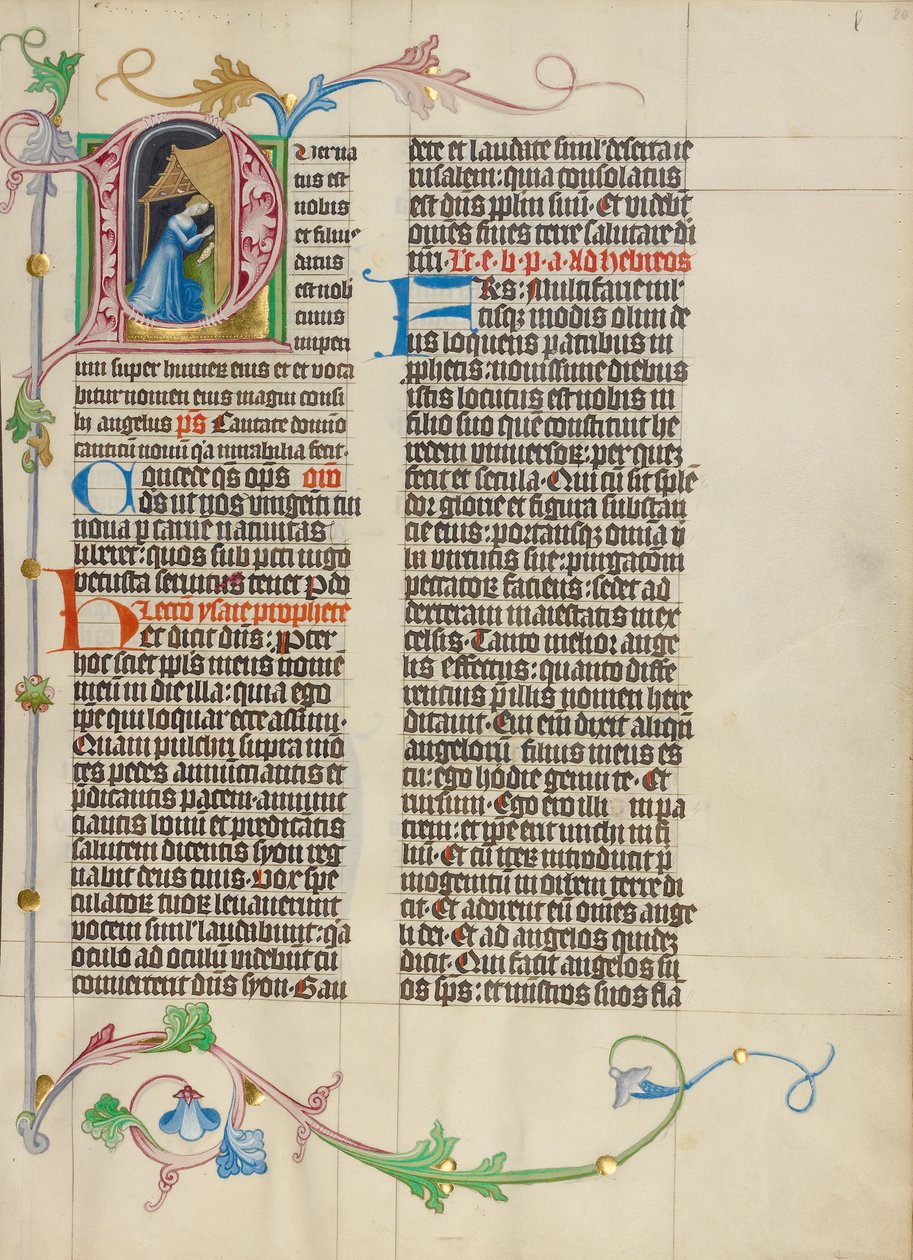 l
20
P
Uerna
tus est
nobis
et filius
datus
est nob
cuius
imperi
um super humerū eius et et voca
bitur nomen eius magni consi
lii angelus ps̄ Cantate domīo
canticū nouū qͥa mirabilia fecit.
Concede qs̄ op̄s oīo
ds̄ ut nos vnigeniti tui
noua p̱ carnē natiuitas
liberet: quos sub pctī iugo
vetusta seruitus tenet P do
Lectō ysaie prophete
Hec dicit dūs: Ppter
hoc sciet ppl̄s meus nomē
meū in die illa: quia ego
ip̄e qui loquar ecce assum.
Quam pulchri supra mō
tes pedes annūciantis et
p̄dicantis pacem. annunt
ciantis bonū et predicātis
salutem dicentis syon reg
nabit deus tuus. Vox spe
culatoꝝ tuoꝝ leuauerunt
vocem simul laudabunt: qͥa
oculo ad oculū videbūt cū
conuerterit dūs syon. Gau
dete et laudate simul deserta ie
rusalem: quia consolatus
est dūs pplm̄ suū. Et videbūt
om̄es fines terre salutare di
nri. Lc̄. e. b. p. a. Ad hebreos
FRs: Multifarie mul
tisqꝫ modis olim de
us loquens patribus in
p̱phetis: nouissime diebus
istis locutus est nobis in
filio suo quē constituit he
redem vniuersoꝝ: per quez
fecit et secula. Qui cū sit splē
dor glorie et figura substan
cie eius: portansqꝫ omīa v̄
bo virtutis sue: purgacōm
peccatoꝝ faciens: sedet ad
dexteram maiestatis in ex
celsis. Tanto melior ange
lis effectus: quanto diffe
rencius p̄ illis nomen here
ditauit. Cui em̄ dixit aliqn̄
angeloru filius meus es
tu: ego hodie genui te. Et
rursum. Ego ero illi in pa
trem: et ip̄e erit michi in fi
liū. Et cū iteꝝ introducit p̄
mogenitū in orbem terre di
cit. Et adorent eū om̄es ange
li dei. Et ad angelos quidez
dicit. Qui facit angelos su
os sp̄s: et mīstros suos flā